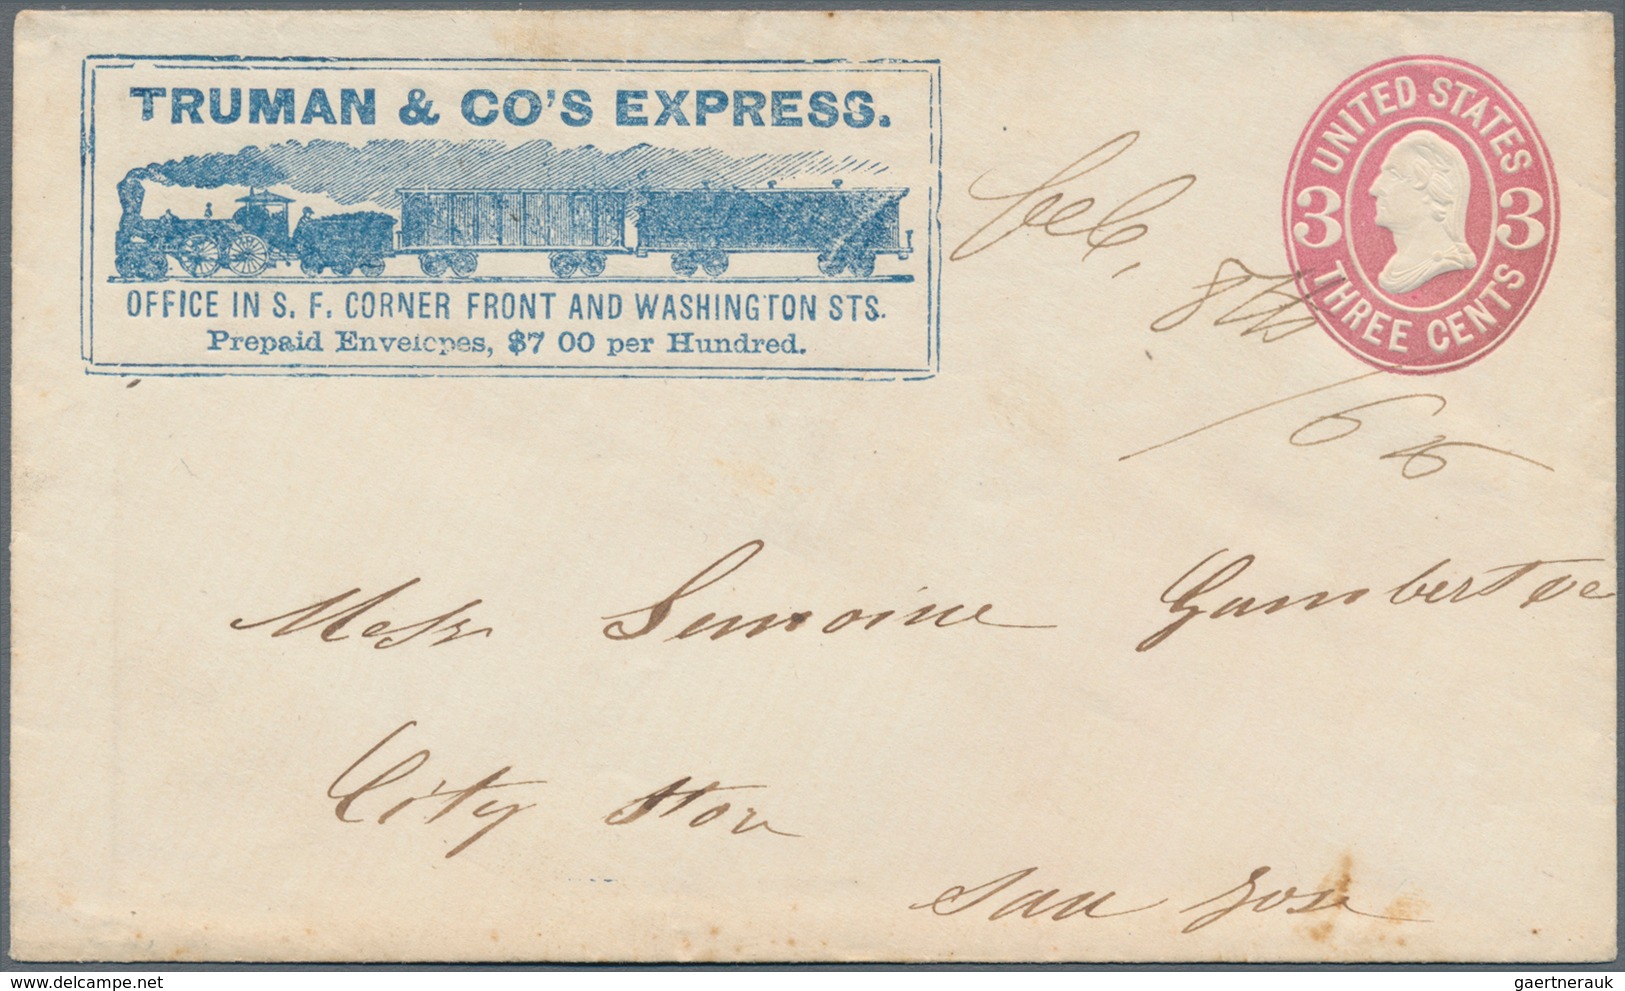 TRUMAN & CO'S EXPRESS.
OFFICE IN S. F. CORNER FRONT AND WASHINGTON STS.
Prepaid Envelopes, $7 00 per Hundred.
UNITED STATES
3 3
THREE CENTS
Feb,
8th
/65
Messr Lemoine Gambert &c
City Stor
San Jose
gaertnerauk